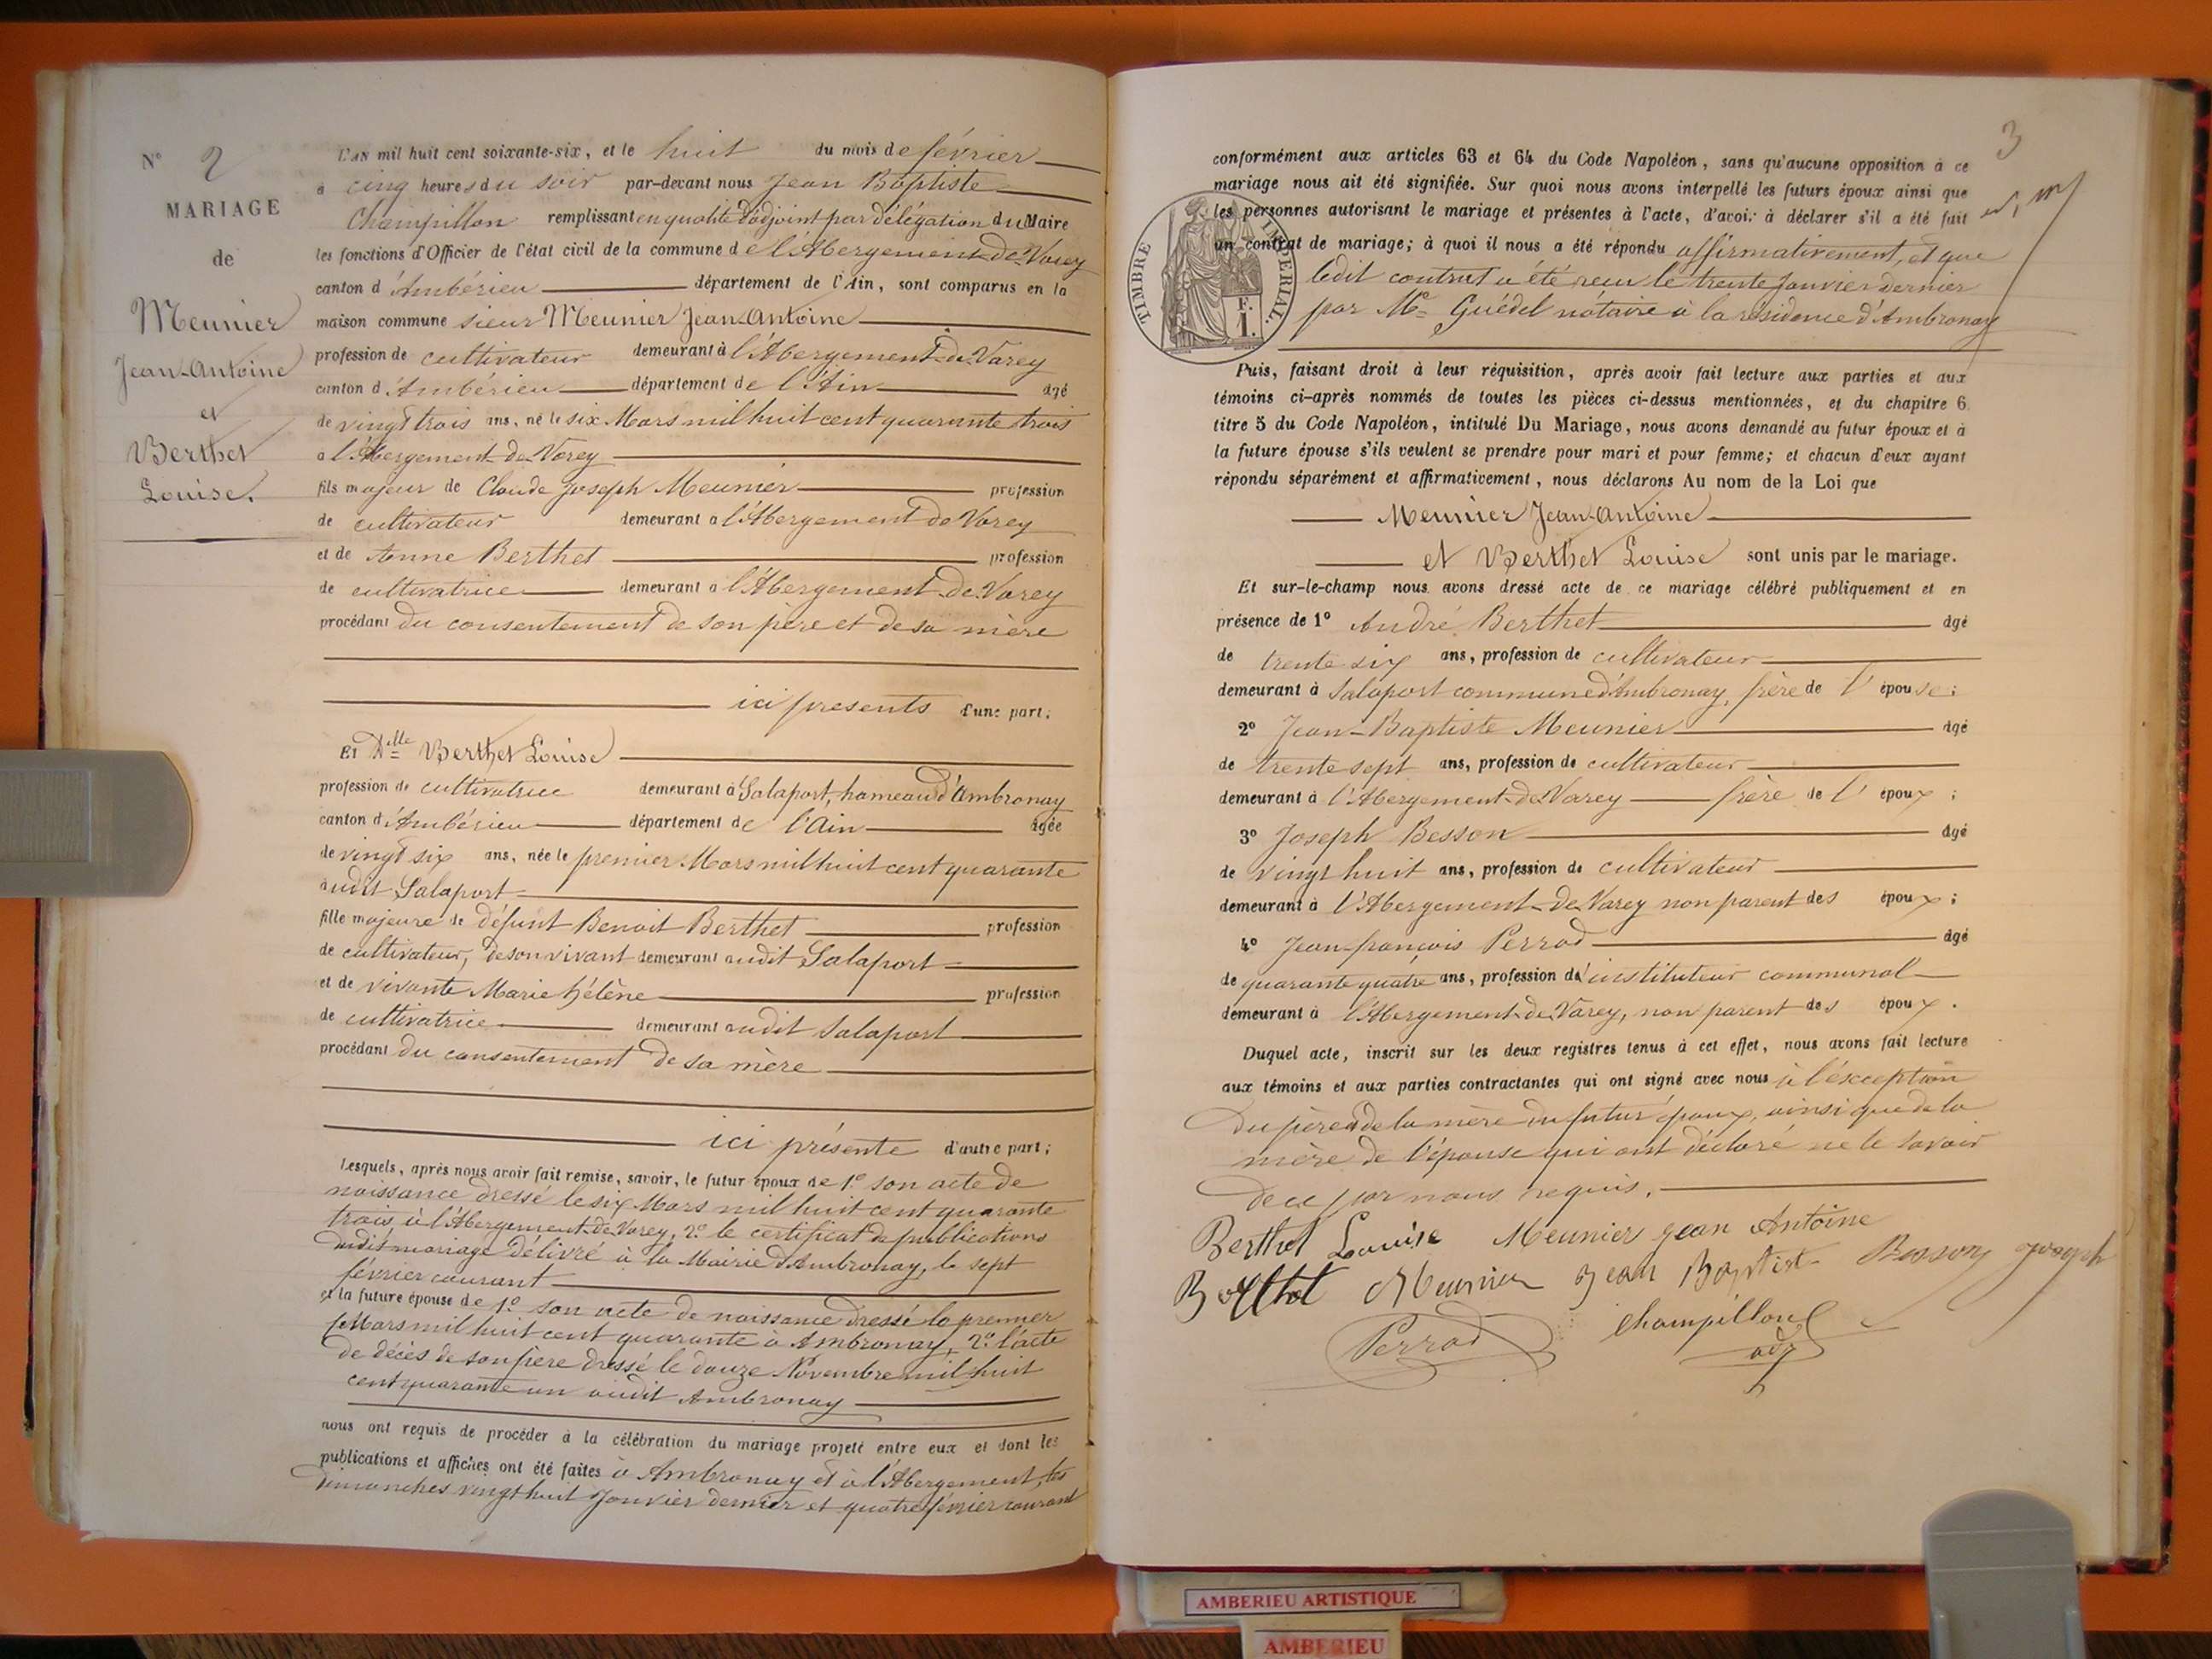 N° 2
MARIAGE
de
Meunier
Jean-Antoine
et
Berthet
Louise.
L'AN mil huit cent soixante-six, et le huit du mois de février
à cinq heures du soir par-devant nous Jean Baptiste
Champillon remplissant en qualité d'adjoint par délégation du Maire
les fonctions d'Officier de l'état civil de la commune de l'Abergement-de-Varey
canton d'Ambérieu département de l'Ain, sont comparus en la
maison commune sieur Meunier Jean-Antoine
profession de cultivateur demeurant à l'Abergement-de-Varey
canton d'Ambérieu département de l'Ain âgé
de vingt trois ans, né le six Mars mil huit cent quarante trois
à l'Abergement-de-Varey
fils majeur de Claude Joseph Meunier profession
de cultivateur demeurant à l'Abergement de Varey
et de Anne Berthet profession
de cultivatrice demeurant à l'Abergement-de-Varey
procédant du consentement de son père et de sa mère
ici présents d'une part;
Et Dlle Berthet Louise
profession de cultivatrice demeurant à Salaport, hameau d'Ambronay
canton d'Ambérieu département de l'Ain âgée
de vingt six ans, née le premier Mars mil huit cent quarante
audit Salaport
fille majeure de défunt Benoit Berthet profession
de cultivateur, de son vivant demeurant audit Salaport
et de vivante Marie hélène profession
de cultivatrice demeurant audit Salaport
procédant du consentement de sa mère
ici présente d'autre part;
Lesquels, après nous avoir fait remise, savoir, le futur époux de 1° son acte de
naissance dressé le six Mars mil huit cent quarante
trois, à l'Abergement-de-Varey, 2° le certificat de publications
dudit mariage délivré à la Mairie d'Ambronay, le sept
février courant
et la future épouse de 1° son acte de naissance dressé le premier
Mars mil huit cent quarante à Ambronay, 2° l'acte
de décès de son père dressé le douze Novembre mil huit
cent quarante un audit Ambronay
nous ont requis de procéder à la célébration du mariage projeté entre eux et dont les
publications et affiches ont été faites à Ambronay et à l'Abergement, les
dimanches vingt huit Janvier dernier et quatre février courant
3
conformément aux articles 63 et 64 du Code Napoléon, sans qu'aucune opposition à ce
mariage nous ait été signifiée. Sur quoi nous avons interpellé les futurs époux ainsi que
les personnes autorisant le mariage et présentes à l'acte, d'avoir à déclarer s'il a été fait
un contrat de mariage; à quoi il nous a été répondu affirmativement, et que
ledit contrat a été reçu le trente Janvier dernier
par Me Guédel notaire à la résidence d'Ambronay
TIMBRE IMPERIAL.
F.
1.
Puis, faisant droit à leur réquisition, après avoir fait lecture aux parties et aux
témoins ci-après nommés de toutes les pièces ci-dessus mentionnées, et du chapitre 6
titre 5 du Code Napoléon, intitulé Du Mariage, nous avons demandé au futur époux et à
la future épouse s'ils veulent se prendre pour mari et pour femme; et chacun d'eux ayant
répondu séparément et affirmativement, nous déclarons Au nom de la Loi que
Meunier Jean-Antoine
et Berthet Louise sont unis par le mariage.
Et sur-le-champ nous avons dressé acte de ce mariage célébré publiquement et en
présence de 1° André Berthet âgé
de trente six ans, profession de cultivateur
demeurant à Salaport commune d'Ambronay, frère de l'épouse;
2° Jean-Baptiste Meunier âgé
de trente sept ans, profession de cultivateur
demeurant à l'Abergement-de-Varey frère de l'époux;
3° Joseph Besson âgé
de vingt huit ans, profession de cultivateur
demeurant à l'Abergement-de-Varey non parent des époux;
4° Jean-françois Perrod âgé
de quarante quatre ans, profession d'instituteur communal
demeurant à l'Abergement-de-Varey, non parent des époux.
Duquel acte, inscrit sur les deux registres tenus à cet effet, nous avons fait lecture
aux témoins et aux parties contractantes qui ont signé avec nous à l'éxception
du père et de la mère du futur époux, ainsi que de la
mère de l'épouse qui ont déclaré ne le savoir
de ce par nous requis.
Berthet Louise Meunier Jean Antoine
Berthet Meunier Jean Baptist Besson Joseph
Perrod Champillon
adj
AMBERIEU ARTISTIQUE
AMBERIEU